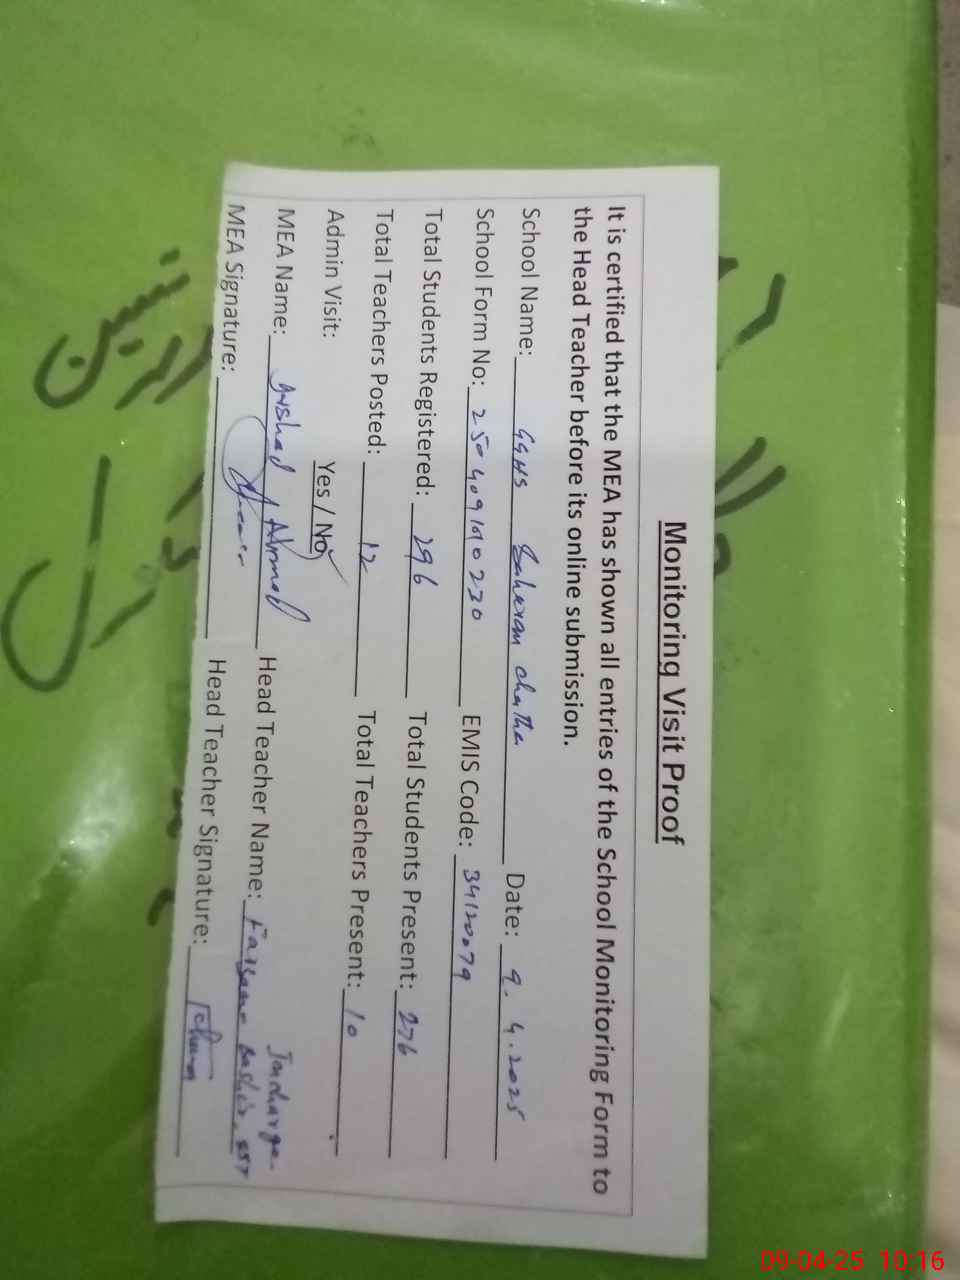 Monitoring Visit Proof
It is certified that the MEA has shown all entries of the School Monitoring Form to
the Head Teacher before its online submission.
School Name: GGHS Chatha Date: 9.4.2025
School Form No: EMIS Code: 34120079
Total Students Registered: 296 Total Students Present: 276
Total Teachers Posted: 12 Total Teachers Present: 10
Admin Visit: Yes / No
Incharge
MEA Name: Arshad Ahmad Head Teacher Name: Farzana Bashir, EST
MEA Signature: Head Teacher Signature:
09-04-25 10:16